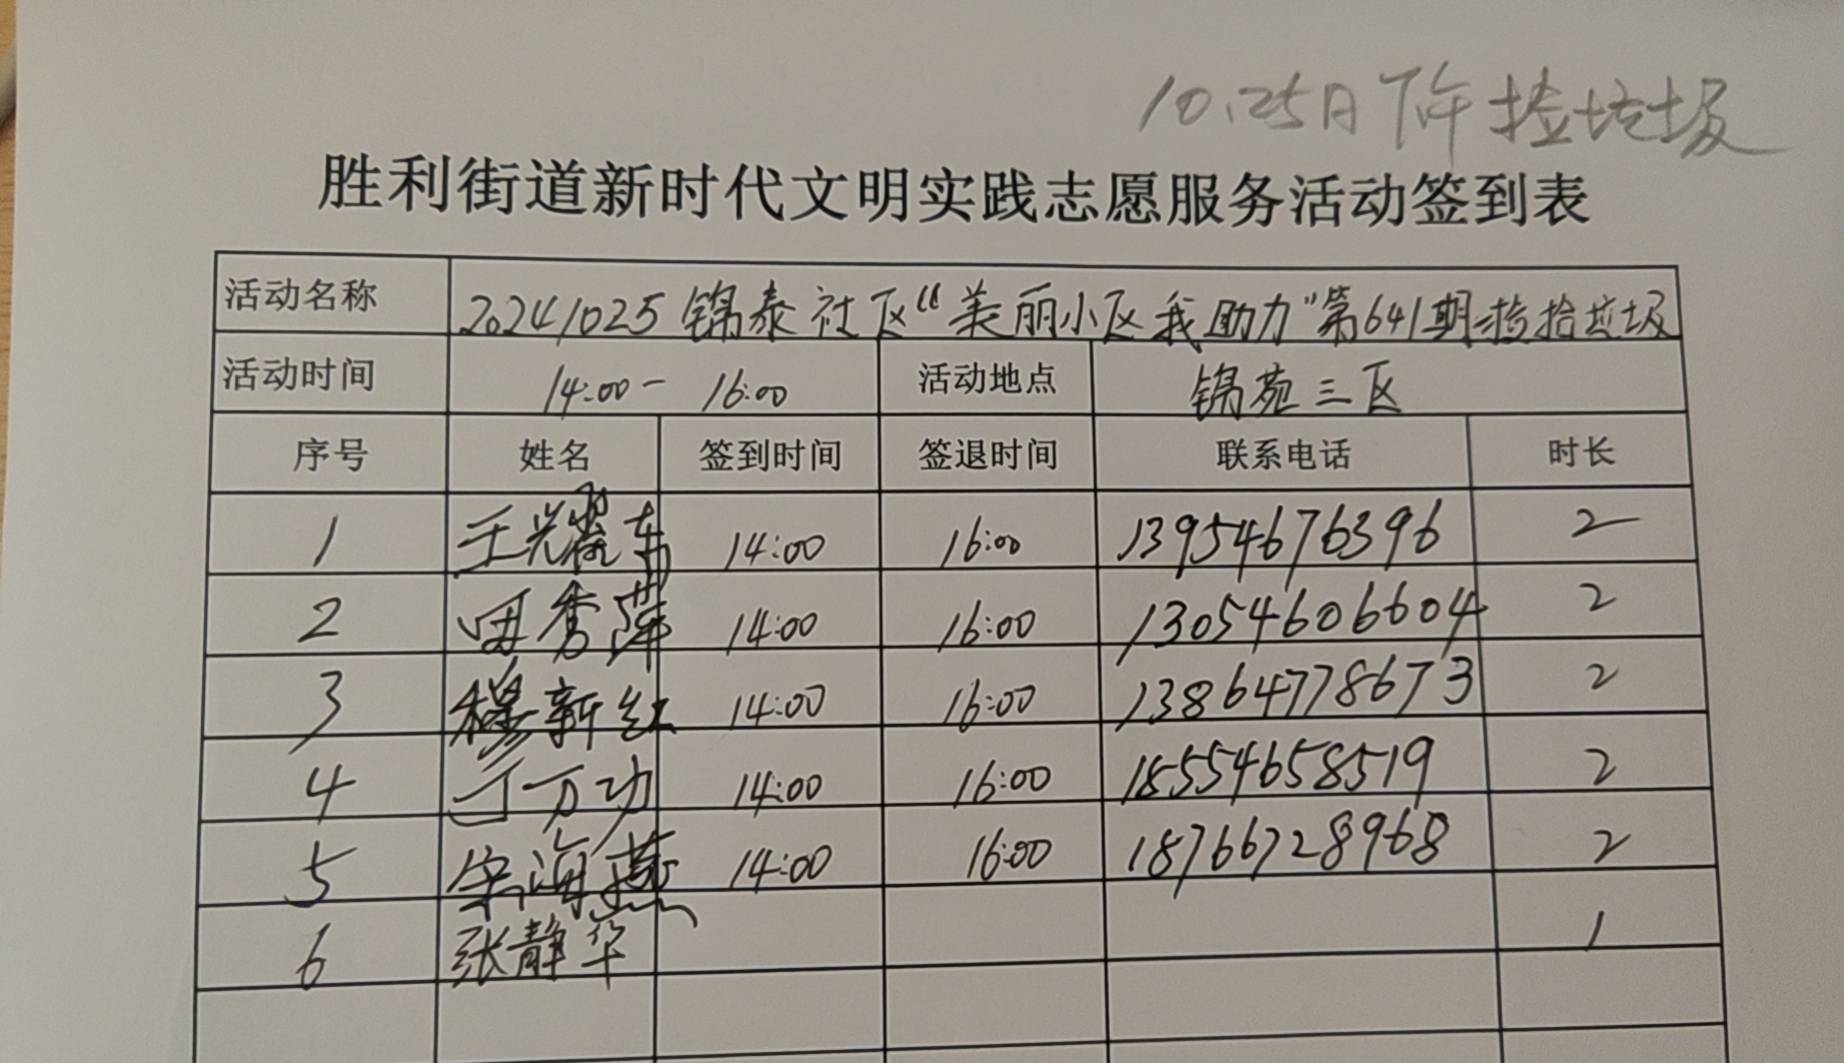 10.25日下午捡垃圾
胜利街道新时代文明实践志愿服务活动签到表
活动名称 20241025锦泰社区“美丽小区我助力”第641期捡拾垃圾
活动时间 14:00- 16:00 活动地点 锦苑三区
序号 姓名 签到时间 签退时间 联系电话 时长
1 王光耀东 14:00 16:00 13954676396 2
2 田秀萍 14:00 16:00 13054606604 2
3 穆新红 14:00 16:00 13864778673 2
4 万功 14:00 16:00 18554658519 2
5 宋海燕 14:00 16:00 18766728968 2
6 张静华 1